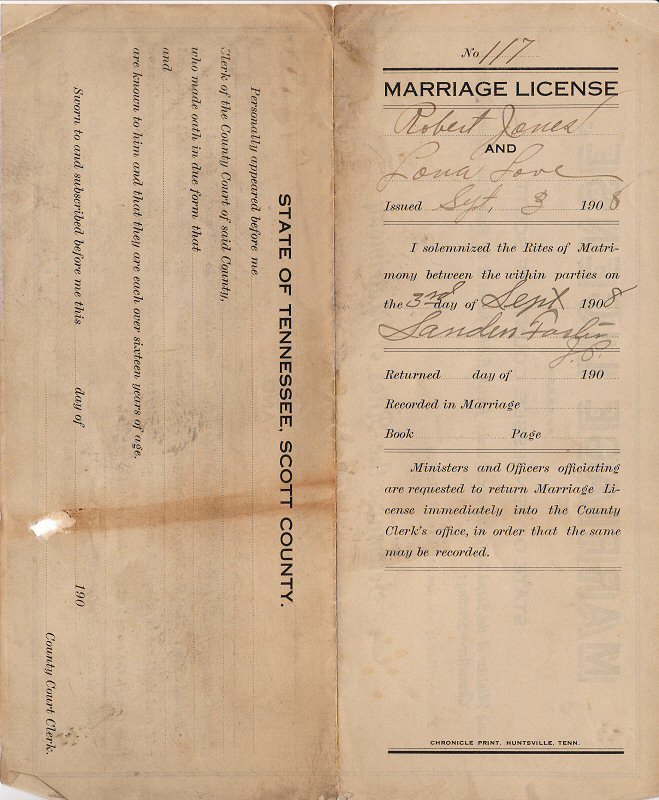 No 117
MARRIAGE LICENSE
Robert Jones
AND
Lona Love
Issued Sept, 3 1908
I solemnized the Rites of Matri-
mony between the within parties on
the 3rd day of Sept 1908
Sanders
J.P.
Returned day of 190
Recorded in Marriage
Book Page
Ministers and Officers officiating
are requested to return Marriage Li-
cense immediately into the County
Clerk's office, in order that the same
may be recorded.
CHRONICLE PRINT, HUNTSVILLE, TENN.
STATE OF TENNESSEE, SCOTT COUNTY.
Personally appeared before me
Clerk of the County Court of said County,
who made oath in due form that
and
are known to him and that they are each over sixteen years of age.
Sworn to and subscribed before me this day of 190
County Court Clerk.